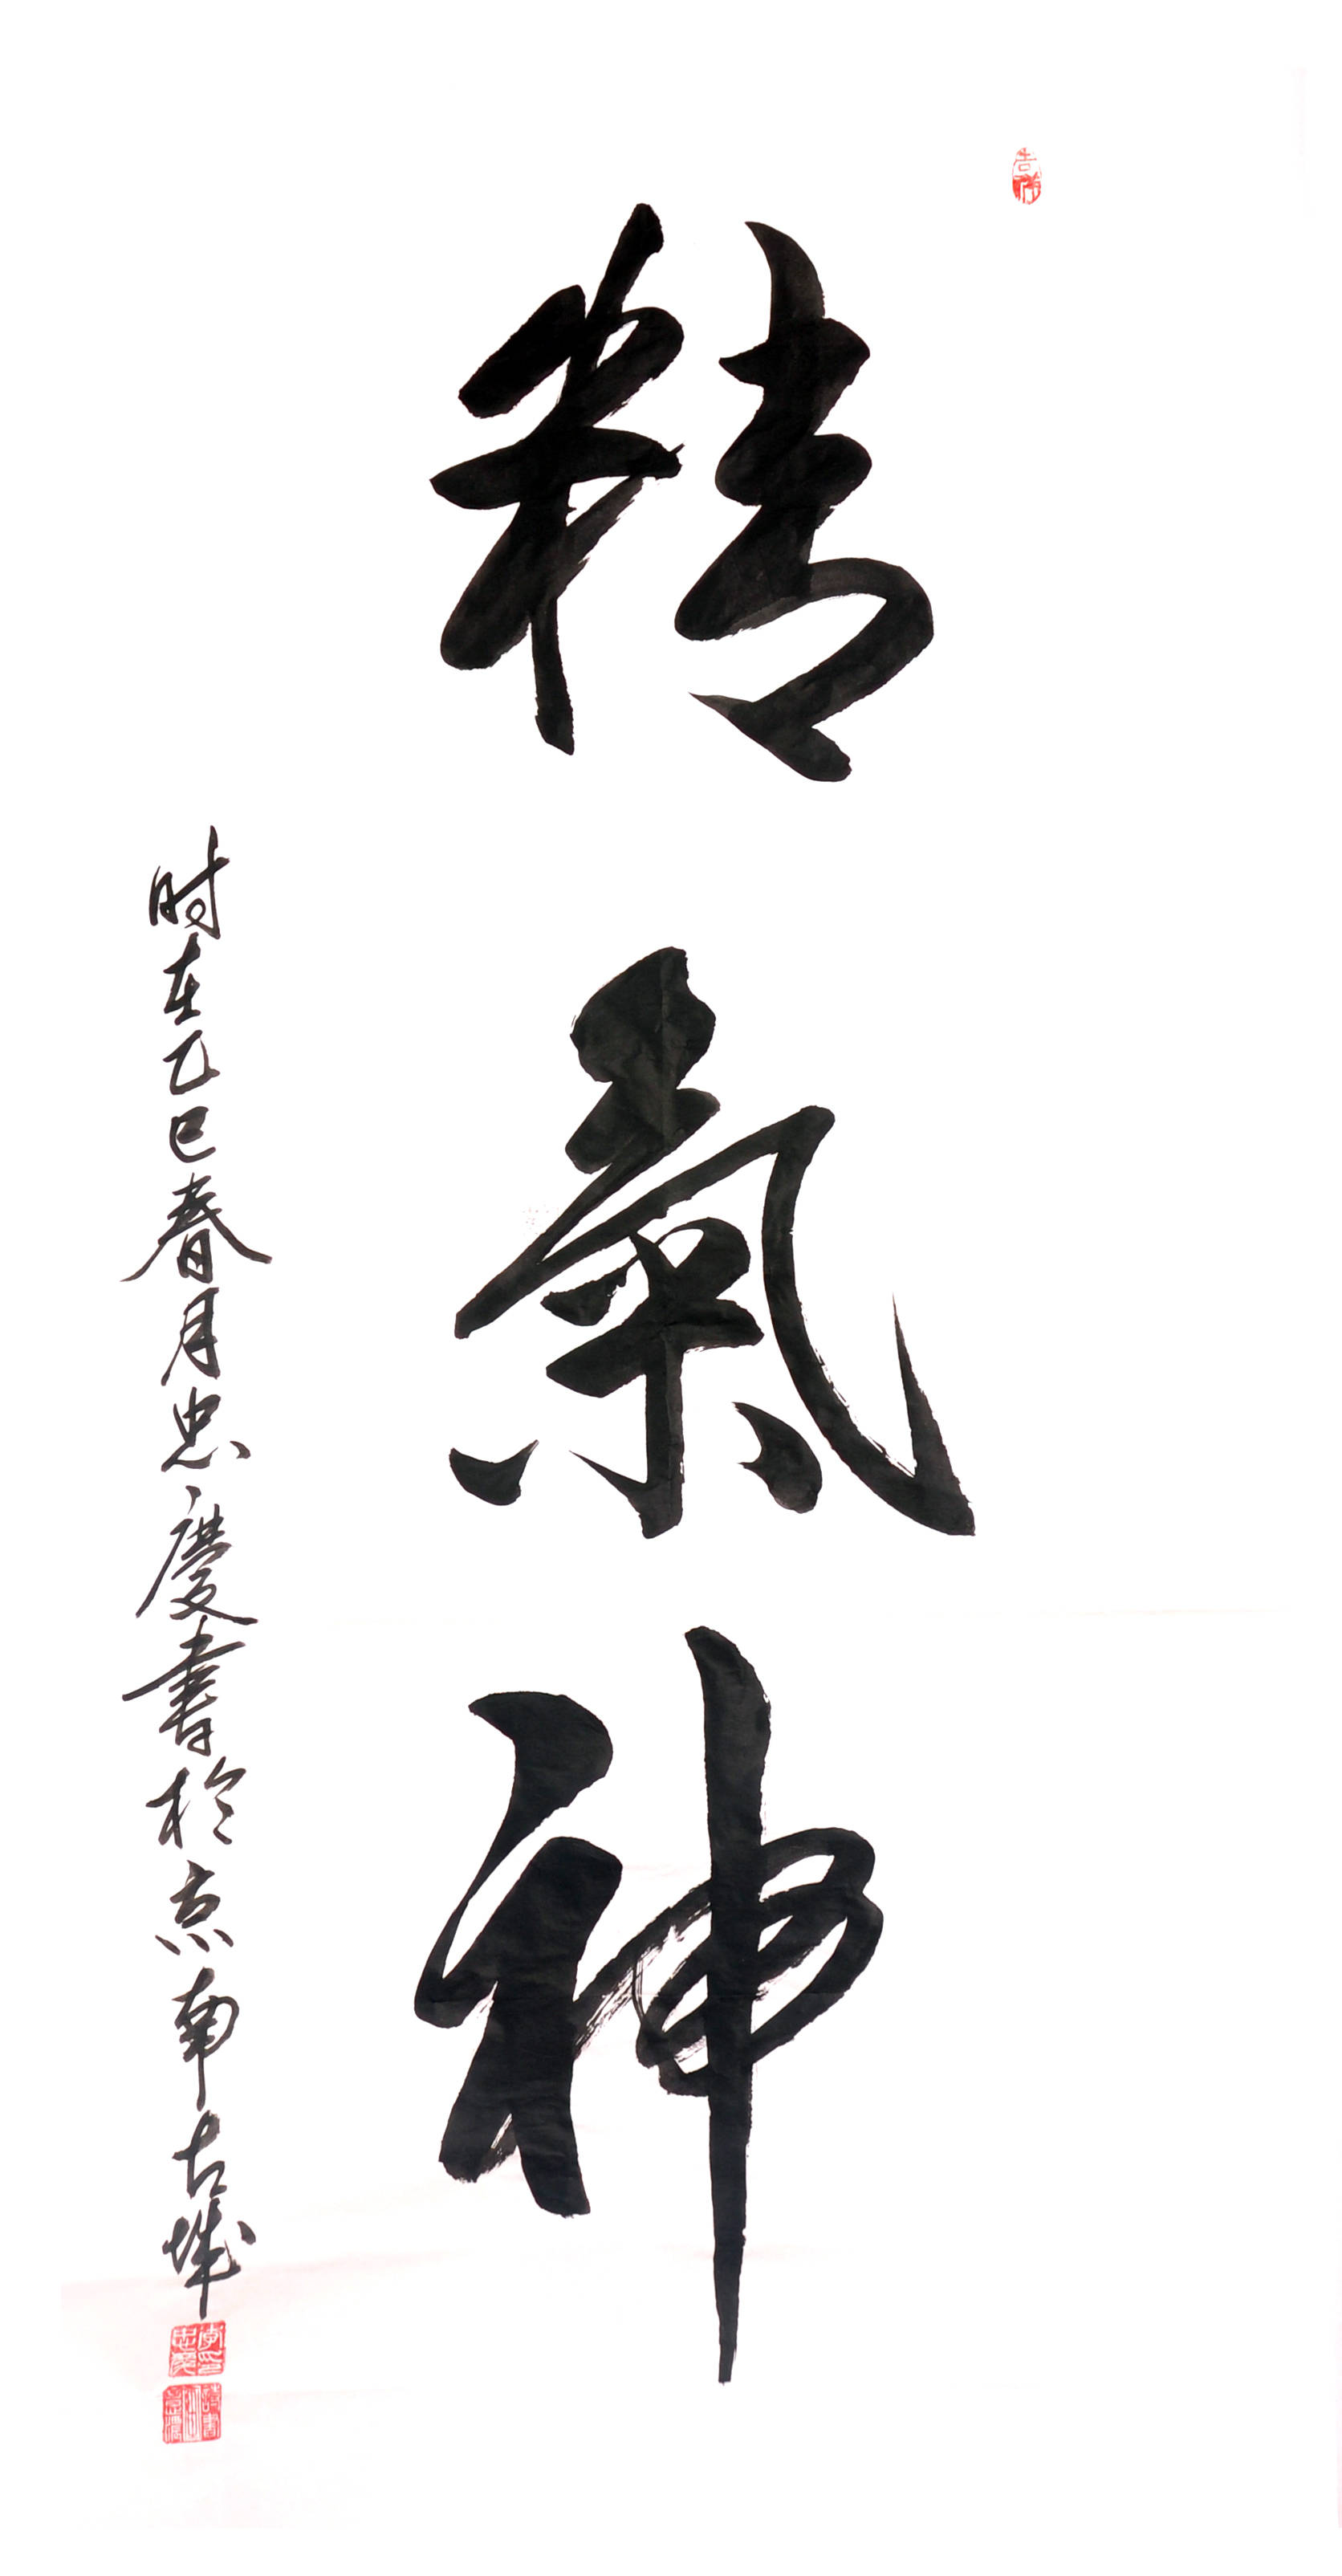 吉祥
精氣神
时在乙巳春月忠慶書於京南古城